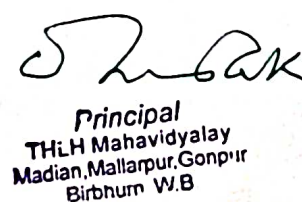 Principal
THLH Mahavidyalay
Madian,Mallarpur,Gonpur
Birbhum W.B